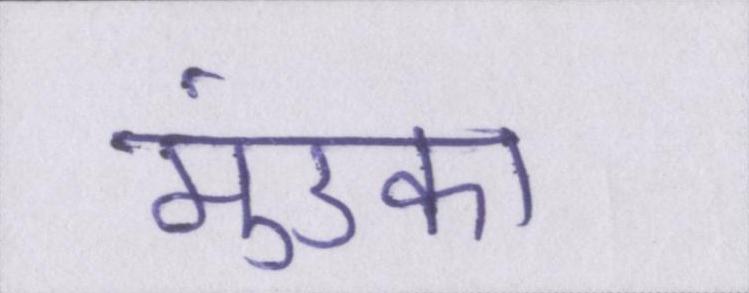 मुंडका